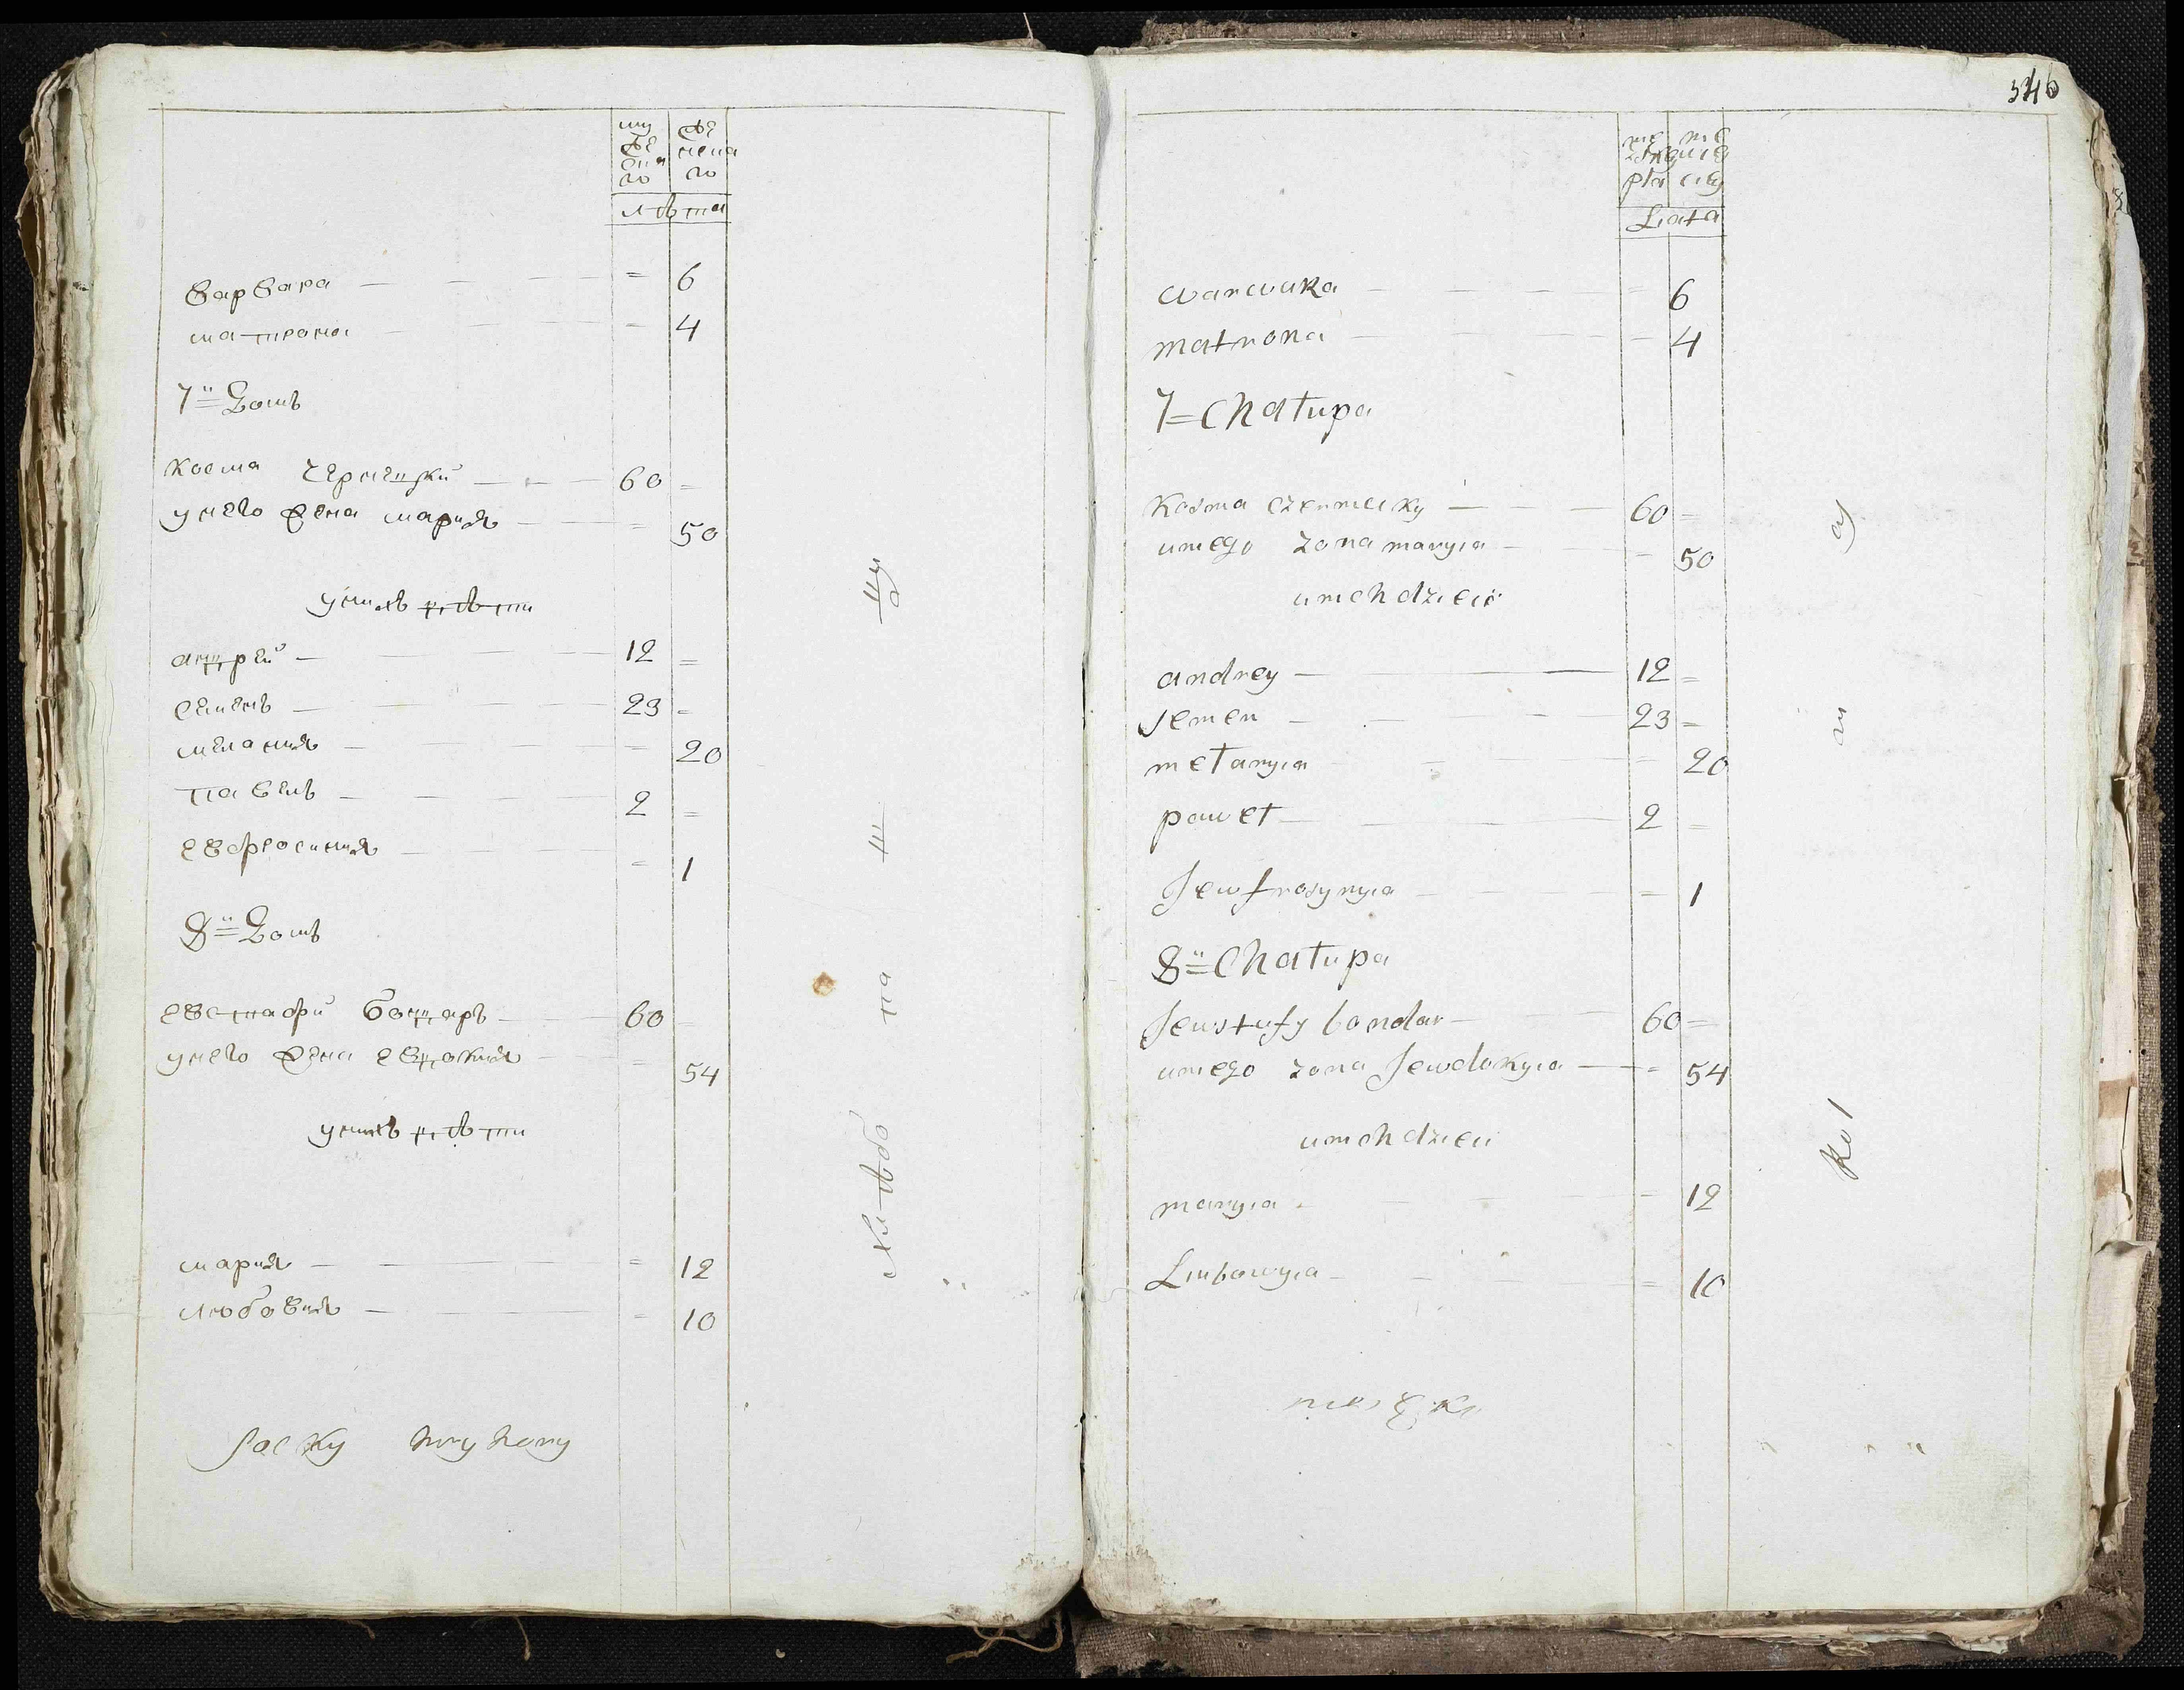 му
же
ска
го
же
нска
го
лѣта
варвара 6
матрона 4
7й Домъ
косма чернецкий 60
унего жена мария 50
унихъ дѣти
андрей 12
семенъ 23
мелания 20
павелъ 2
евфросиния 1
8й Домъ
евстафий бондаръ 60
унего жена евдокия 54
унихъ дѣти
мария 12
любовия 10
346
Liata
warwara 6
matrona 4
7 = Chałupa
Kosma czerniecky 60
uniego zona maryia 50
unich dzieci
andrey 12
semen 23
mełanyia 20
paweł 2
Jewfrosynyia 1
8 = Chałupa
Jewstafy bondar 60
uniego zona Jewdokyia 54
unich dzieci
maryia 12
Liubowyia 10